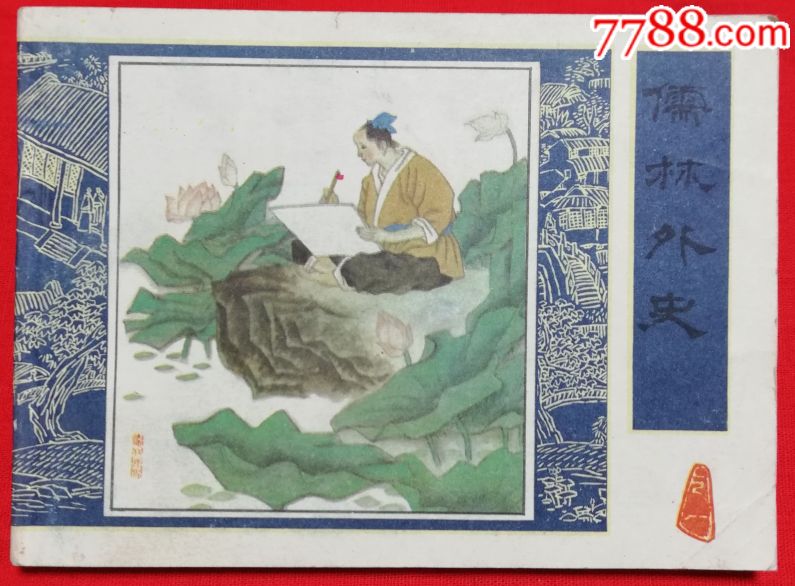 7788.com
儒林外史
之一